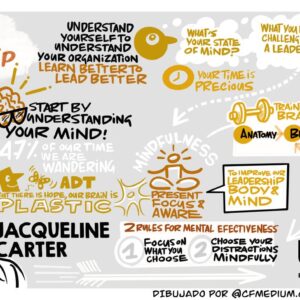 UNDERSTAND
YOURSELF TO
UNDERSTAND
YOUR ORGANIZATION
LEARN BETTER TO
LEAD BETTER
WHAT'S
YOUR STATE
OF MIND?
WHAT YOU
CHALLENG
A LEADE
YOUR TIME IS
PRECIOUS
START BY
UNDERSTANDING
YOUR MIND!
TRAIN
BRA
ANATOMY
47% OF OUR TIME
WE ARE
WANDERING
MINDFULNESS
ADT
THERE IS HOPE, OUR BRAIN IS
PLASTIC
PRESENT
FOCUS &
AWARE
TO IMPROVE OUR
LEADERSHIP
BODY &
MIND
JACQUELINE
CARTER
2 RULES FOR MENTAL EFFECTIVENESS
1 FOCUS ON
WHAT YOU
CHOOSE
2 CHOOSE YOUR
DISTRACTIONS
MINDFULLY
DIBUJADO POR @CFMEDIUM.C